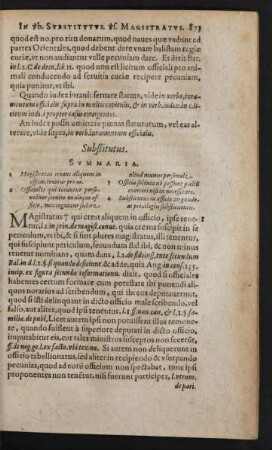 IN ℣b. SVBSTITVTVS. ℣ſ. MAGISTRATVS. 873
quod est no. pro tira donatum, quod naues quæ vadunt ad
partes Orientales, quod debent dare vnam balistam regiæ
curiæ, vt non auditantur velle pecuniam dare. Et dixit Bar.
in l. 2. C. de dom. lib. 11. quod non est licitum officiali pro ani-
mali conducendo ad seruitia curiæ recipere pecuniam,
quia punitur, vt ibi.
Quando iudex intrat: seruare statuta, vide in verbo, iura-
mentum officialis supra in multis capitulis, & in verb. index in ci-
uitem intus. propter casus emergentes.
An iudex possit omittere pœnas statutorum, vel eas alte-
rare, vide supra, in verb. iuramentum officialis.
Substitutus.
SVMMARIA.
1 Magistratus creans aliquem in
officio, tenetur pro eo.
2 Officialis qui tenentur perso-
naliter seruire in aliquo of-
ficio, non cogantur soluere,
aliud munus personale.
3 Officia sic lata an possint p aliū
exerceri nisi ex necessitate.
4 Substitutus in officio an gaude-
at priuilegio substituentis.
MAgistratus † qui creat aliquem in officio, ipse tene- 1
tur, l. 2. in prin. de magist. conue. quia creans suscipit in se
periculum, vt ibi, & si sint plures magistratus, illi tenentur,
qui suscipiunt periculum, secundum Bald. ibi, & non minus
tenetur nominans, quam dans, l. 2. de susceptor.
Bal. in l. 2. §. si quando desidant & adde, quia Ang. in consi. 35.
incip. ex figura secundæ reformationis. dixit, quod si officiales
habentes certum formare cum potestate ibi ponendi ali-
quos notarios ad scribendum, qui ibi eos deputauerunt,
quod si substituti ab eis in dicto officio male scribendo, vel
falso, aut aliter, quod ipsi tenentur, l. 2. ff. nau. cau. & l. 2. §. fa-
milia. de publ. Licet autem ipsi non potuissent illos remoue-
re, quando fuissent à superiore deputati in dicto officio,
imputabitur eis, cur tales ministros insceptos non fecerūt,
ff. de neg. ge. l. ex facto. vbi tex. no. Si autem non deliquerunt in
officio tabellionatus, sed aliter in recipiendo & vsurpando
pecunias, quod ad eorū officium non spectabat, tunc ipsi
proponentes non tenentur, nisi fuerunt participes, l. verum.
de pari.